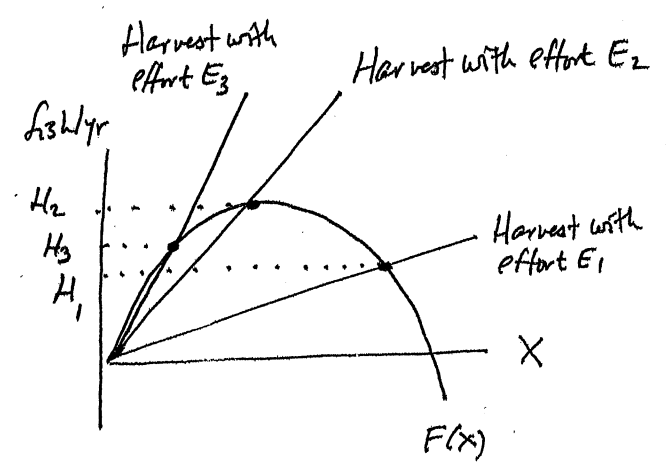 Harvest with
effort E₃
Harvest with effort E₂
fish/yr
H₂
H₃
H₁
Harvest with
effort E₁
X
F(x)